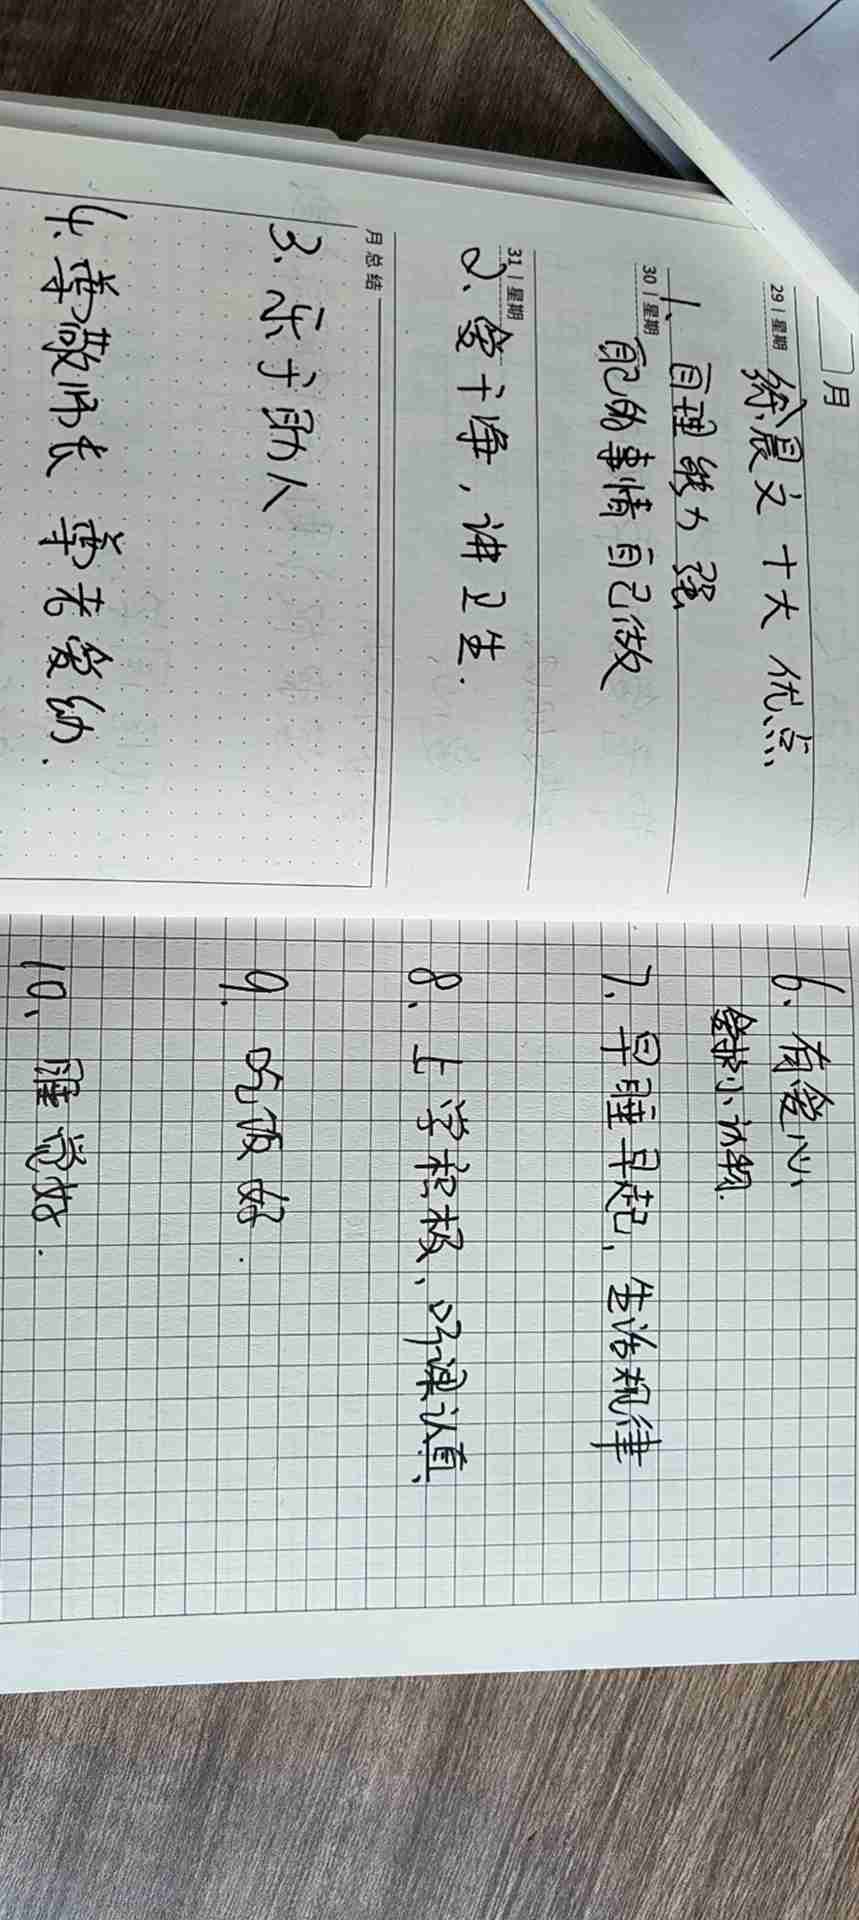 月
29 | 星期
徐晨文 十大 优点
30 | 星期
1、自理能力强
自己的事情自己做
31 | 星期
2、爱干净，讲卫生.
月总结
3、乐于助人
4、尊敬师长 尊老爱幼.
6、有爱心
爱护小动物.
7、早睡早起，生活规律
8、上学积极、听课认真、
9. 吃饭好.
10、睡觉好.